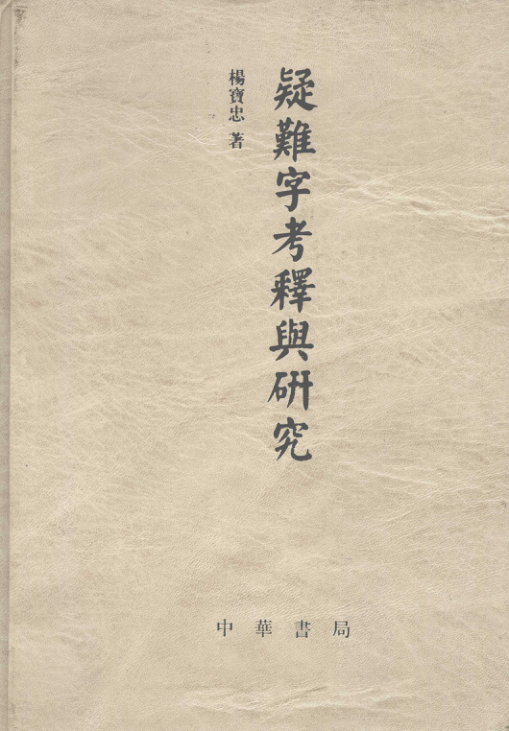 疑難字考釋與研究
楊寶忠 著
中華書局